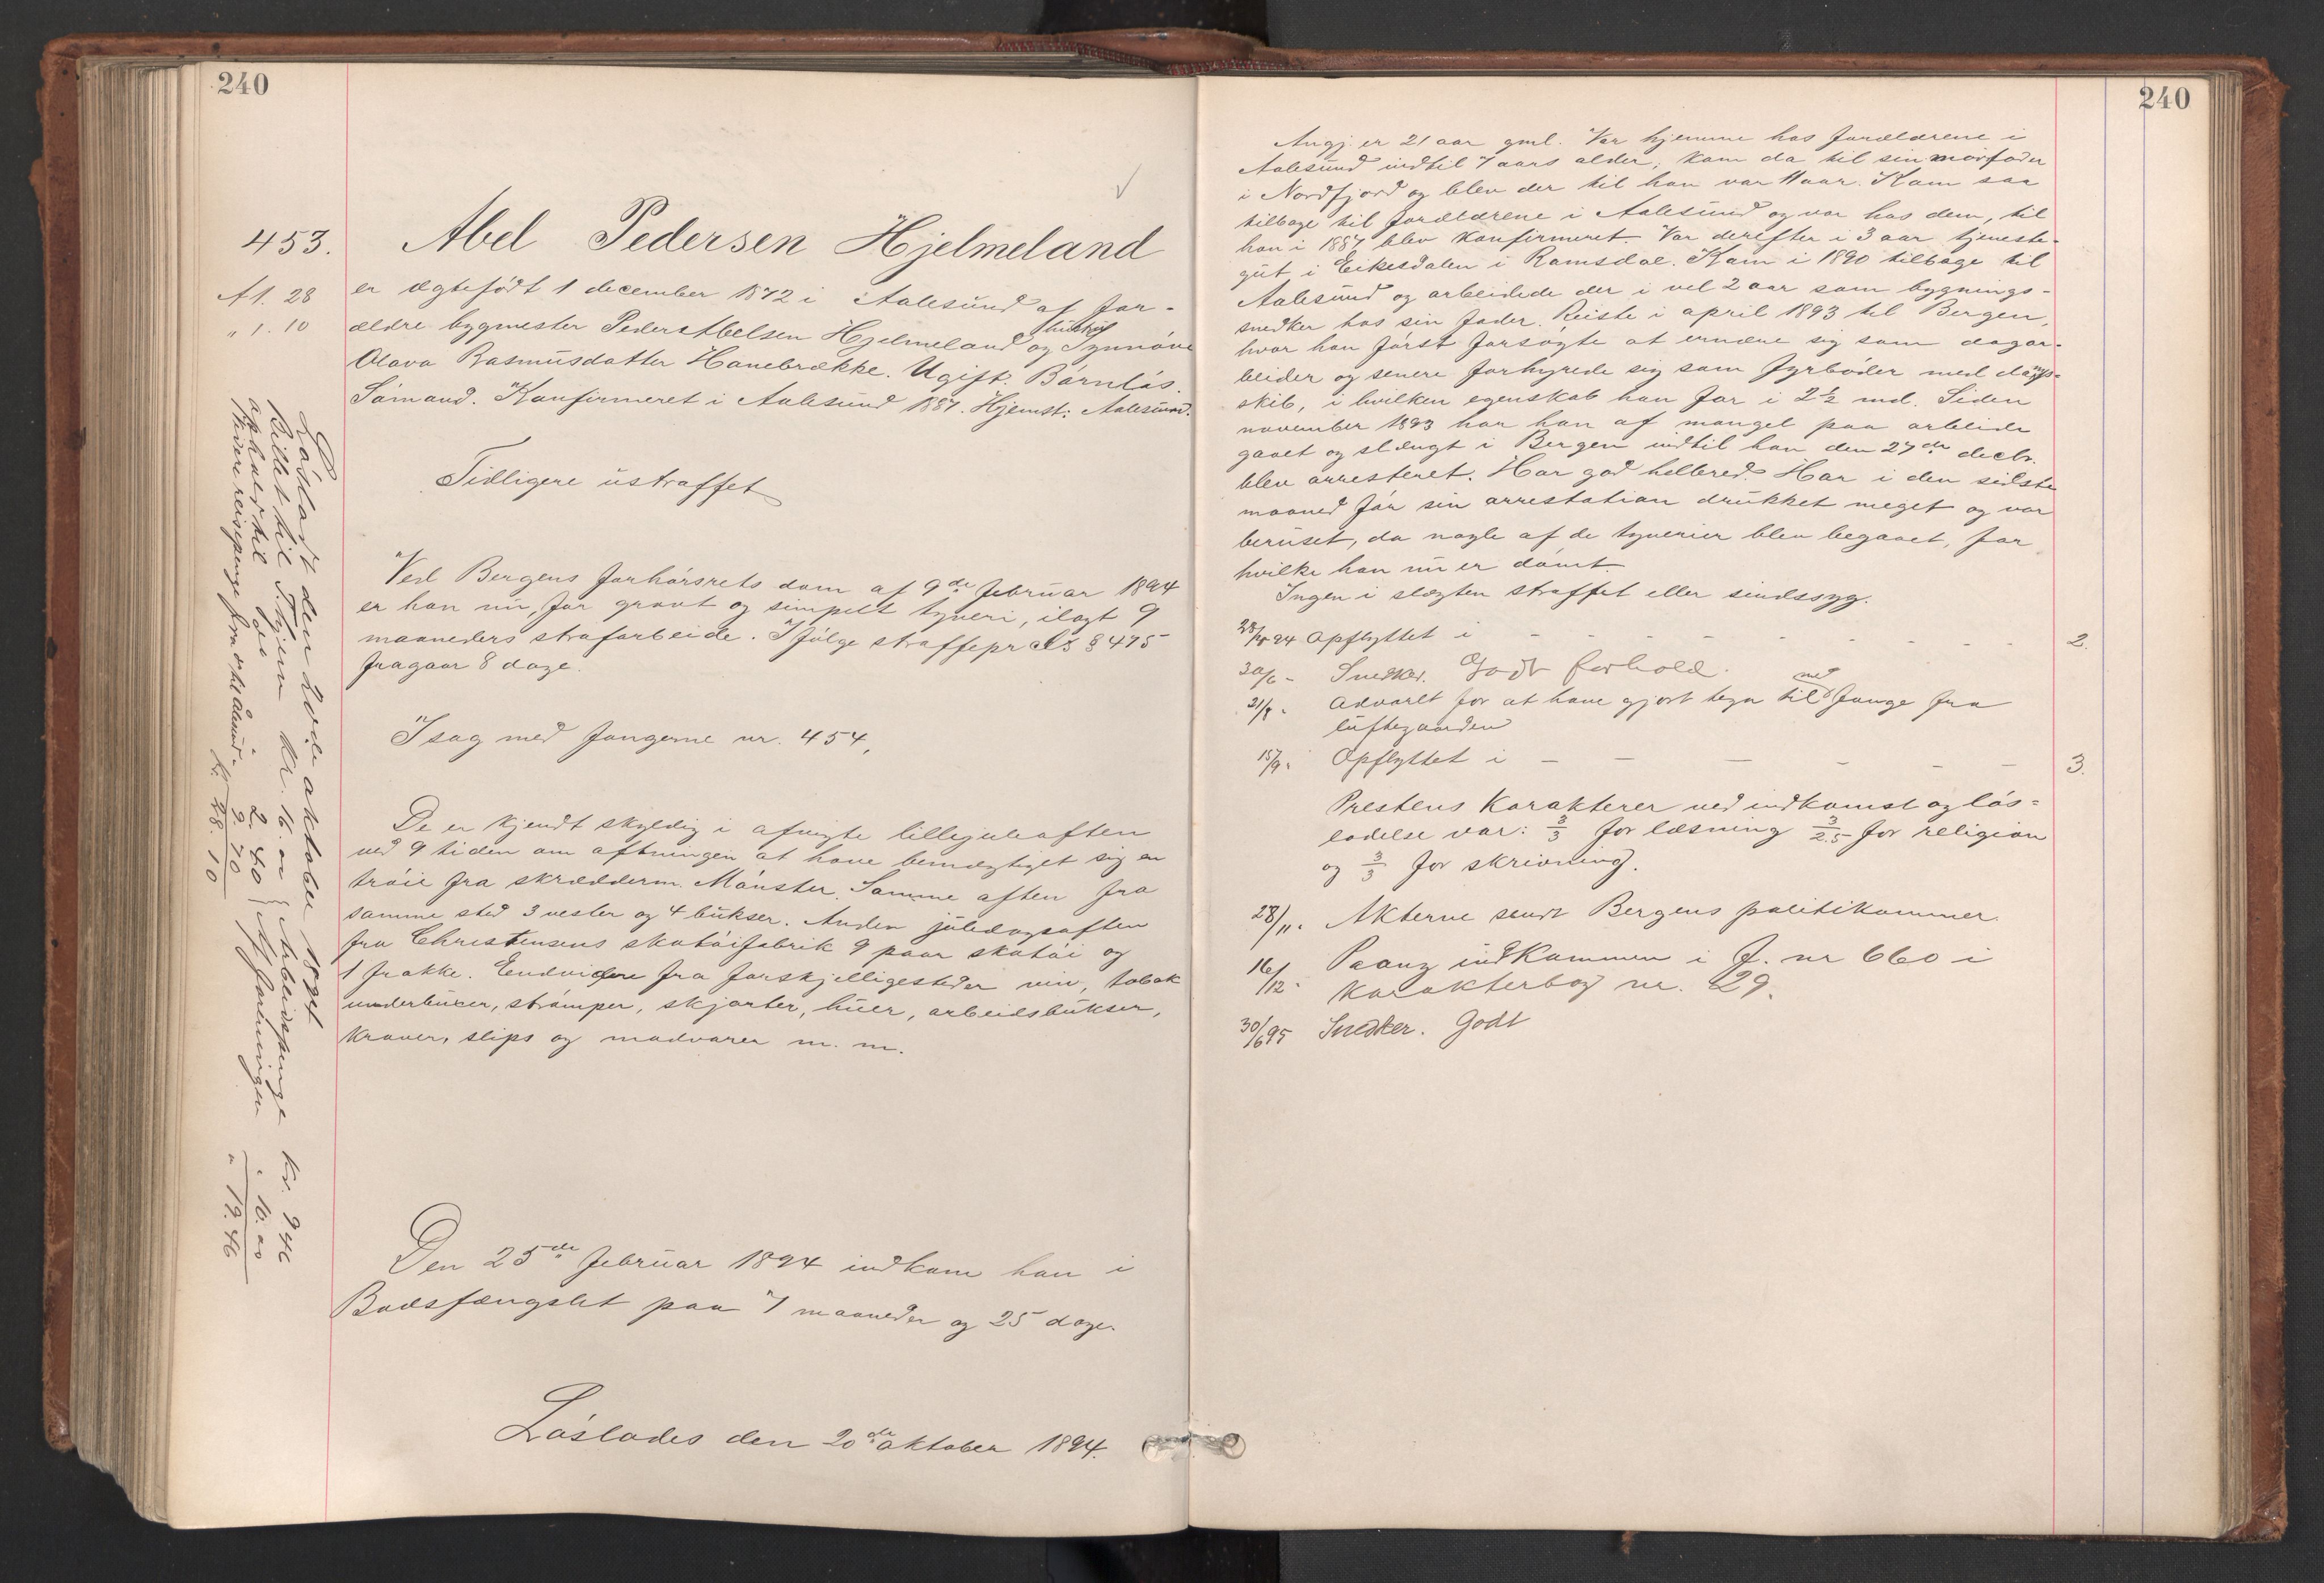 240
453.
Abel Pedersen Hjelmeland
A 1. 28
" 1. 10
er ægtefødt 1 december 1872 i Aalesund af for-
ældre bygmester Peder Abelsen Hjelmeland og hustru Synnøve
Olava Rasmusdatter Hanebrække. Ugift. Børnløs.
Sømand. Konfirmeret i Aalesund 1887. Hjemst: Aalesund.
Tidligere ustraffet
Ved Bergens forhørsrets dom af 9de februar 1894
er han nu, for grovt og simpelt tyveri, ilagt 9
maaneders strafarbeide. I følge straffepr. § 475
fragaar 8 dage.
I sag med fangerne nr. 454,
De er kjendt skyldig i afvigte lillejuleaften
ved 9 tiden om aftningen at have bemægtiget sig en
trøie fra skrædderm. Mønster. Samme aften fra
samme sted 3 vester og 4 bukser. Anden juledagsaften
fra Christensens skotøifabrik 9 paar skotøi og
1 frakke. Endvidere fra forskjellige steder vin, tobak
underbuxer, strømper, skjorter, huer, arbeidsbukser,
kraver, slips og madvarer m. m.
Den 25de februar 1894 indkom han i
Bodsfængslet paa 7 maaneder og 25 dage.
Løslades den 20de oktober 1894.
Løsladt den 20de oktober 1894
Billet til hjem kr. 16. oo } Arbeidspenge kr. 9 46
ophold til do " 2. 40 { Af forening " 10. oo
Videre reisepenge fra " 9. 70 " 19. 46
kr. 28. 10
240
Angj. er 21 aar gml. Var hjemme hos forældrene i
Aalesund indtil 7 aars alder; kom da til sin morfader
i Nordfjord og blev der til han var 11 aar. Kom saa
tilbage til forældrene i Aalesund og var hos dem, til
han i 1887 blev konfirmeret. Var derefter i 3 aar tjeneste-
gut i Eikesdalen i Romsdal. Kom i 1890 tilbage til
Aalesund og arbeidede der i vel 2 aar som bygnings-
snedker hos sin fader. Reiste i april 1893 til Bergen,
hvor han først forsøgte at ernære sig som dagar-
beider og senere forhyrede sig som fyrbøder med damp-
skib, i hvilken egenskab han for i 2½ md. Siden
november 1893 har han af mangel paa arbeide
gaaet og slængt i Bergen indtil han den 27de decbr.
blev arresteret. Har god helbred. Har i den sidste
maaned før sin arrestation drukket meget og var
beruset, da nogle af de tyverier blev begaaet, for
hvilke han nu er dømt.
Ingen i slægten straffet eller sindssyg.
94 Opflyttet i - - - - - - - 2.
30/6 - Snedker. Godt forhold.
21/8 - Advarlt for at have gjort tegn til med fange fra
luftegaarden
15/9 - Opflyttet i - - - - - - 3.
Prestens karakterer ved indkomst og løs-
ladelse var: 3/3 for læsning 3/2.5 for religion
og 3/3 for skrivning.
28/11 - Akterne sendt Bergens politikammer.
16/12 - Paany indkommen i F. nr 660 i
karakterbog nr. 29.
30/6 95 Snedker. Godt